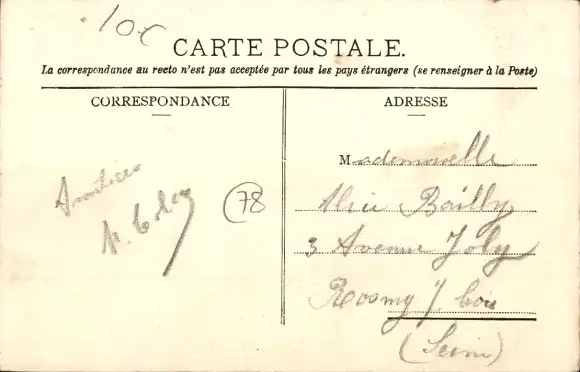 10€
CARTE POSTALE.
La correspondance au recto n'est pas acceptée par tous les pays étrangers (se renseigner à la Poste)
CORRESPONDANCE
ADRESSE
Mademoiselle
Alice Bailly
3 Avenue Joly
Rosny s/ Bois
(Seine)
Amitiés
78